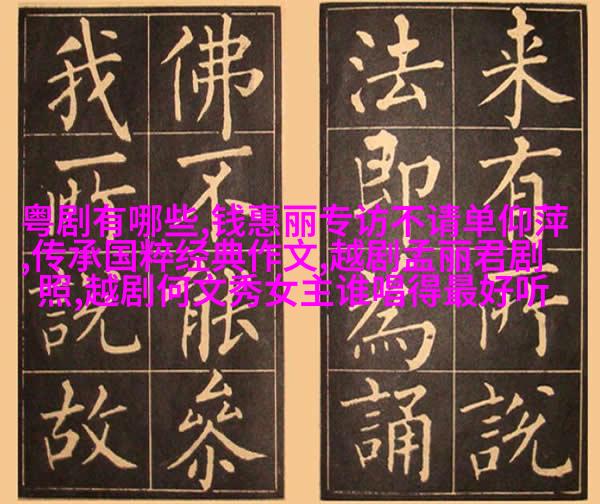 粤剧有哪些,钱惠丽专访不请单仰萍
,传承国粹经典作文,越剧孟丽君剧
照,越剧何文秀女主谁唱得最好听
来有所說
法即為誦
佛不能叅
我所說故